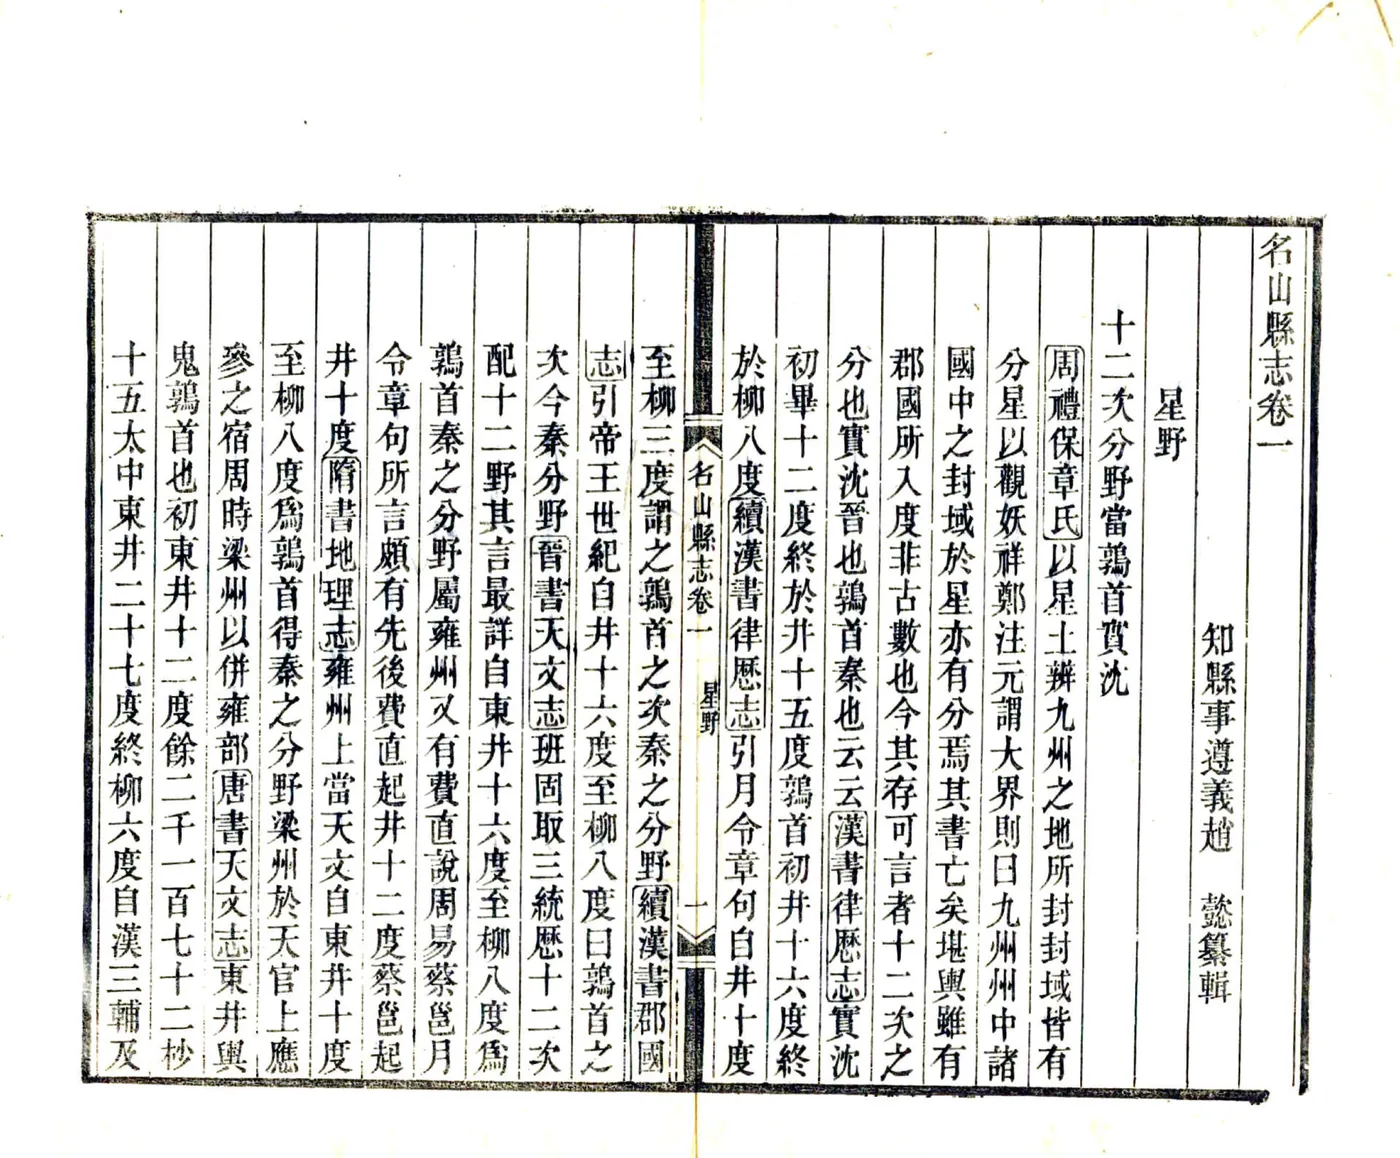 名山縣志卷一
知縣事遵義趙 懿纂輯
星野
十二次分野當鶉首實沈
周禮保章氏以星土辨九州之地所封封域皆有
分星以觀妖祥鄭注元謂大界則曰九州州中諸
國中之封域於星亦有分焉其書亡矣堪輿雖有
郡國所入度非古數也今其存可言者十二次之
分也實沈晉也鶉首秦也云云漢書律歷志實沈
初畢十二度終於井十五度鶉首初井十六度終
於柳八度續漢書律歷志引月令章句自井十度
名山縣志卷一 星野 一
至柳三度謂之鶉首之次秦之分野續漢書郡國
志引帝王世紀自井十六度至柳八度曰鶉首之
次今秦分野晉書天文志班固取三統歷十二次
配十二野其言最詳自東井十六度至柳八度爲
鶉首秦之分野屬雍州又有費直說周易蔡邕月
令章句所言頗有先後費直起井十二度蔡邕起
井十度隋書地理志雍州上當天文自東井十度
至柳八度爲鶉首得秦之分野梁州於天官上應
參之宿周時梁州以併雍部唐書天文志東井輿
鬼鶉首也初東井十二度餘二千一百七十二杪
十五太中東井二十七度終柳六度自漢三輔及